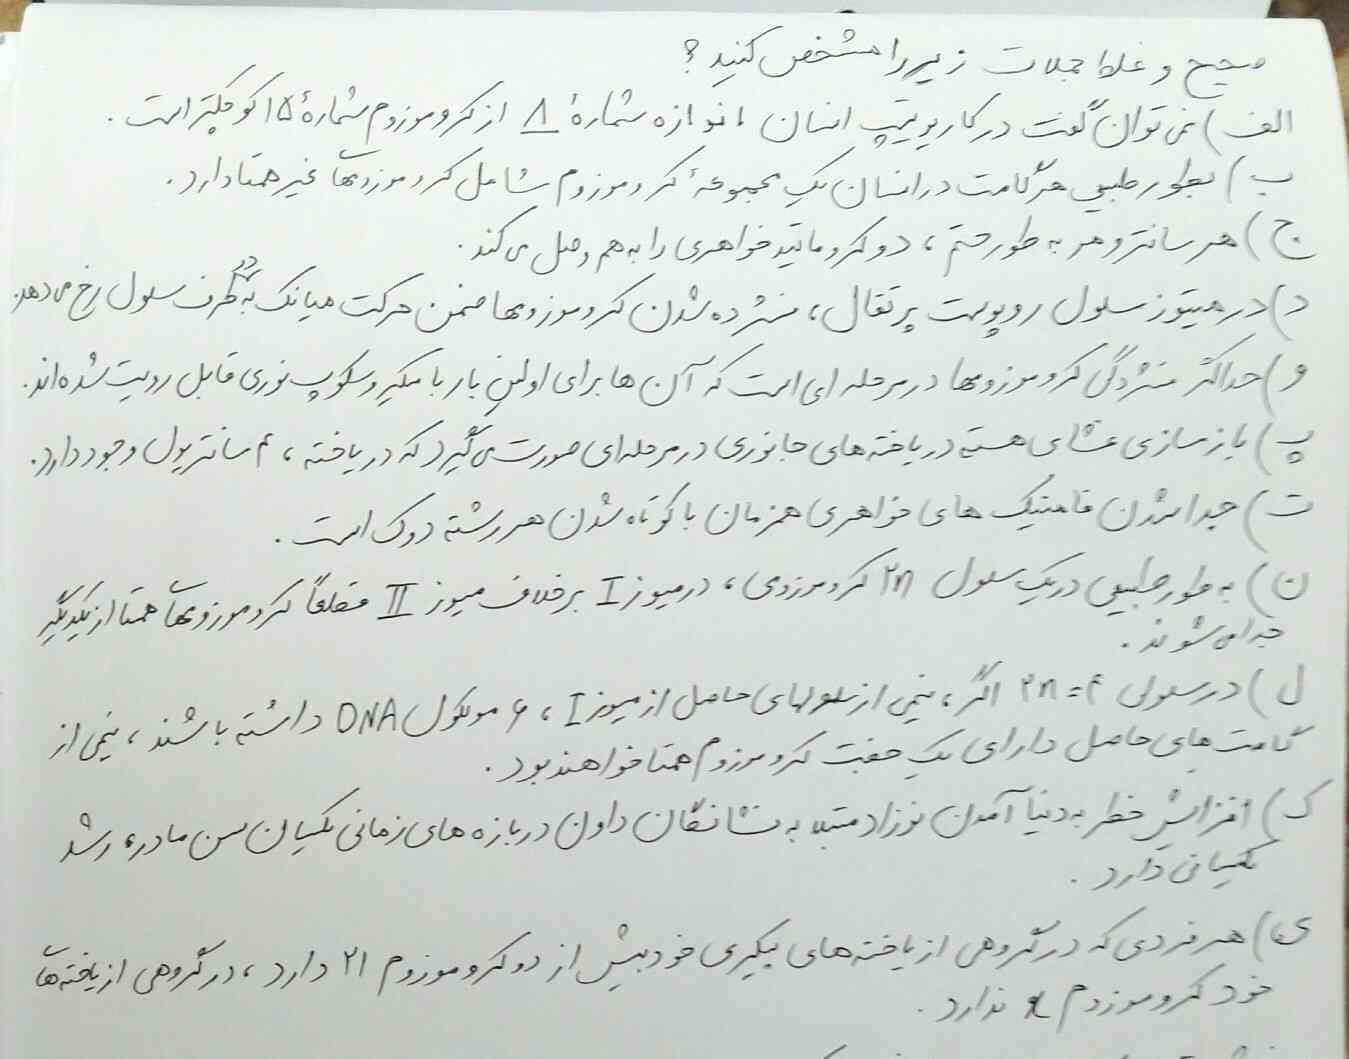 صحیح و غلط جملات زیر را مشخص کنید؟
الف) نمی توان گفت در کاریوتیپ انسان اندازه شمارهٔ ۸ از کروموزوم شمارهٔ ۱۵ کوچکتر است.
ب) بطور طبیعی هر گامت در انسان یک مجموعهٔ کروموزوم شامل کروموزومهای غیر همتا دارد.
ج) هر سانترومر به طور حتم، دو کروماتید خواهری را به هم وصل می کند.
د) در میتوز سلول روپوست پرتقال، فشرده شدن کروموزومها ضمن حرکت میانک به دو طرف سلول رخ می دهد.
و) حداکثر فشردگی کروموزومها در مرحله ای است که آن ها برای اولین بار با میکروسکوپ نوری قابل رویت شده اند.
پ) بازسازی غشای هسته در یاخته های جانوری در مرحله ای صورت می گیرد که در یاخته، ۴ سانتریول وجود دارد.
ت) جدا شدن فامینک های خواهری همزمان با کوتاه شدن هر رشته دوک است.
ن) به طور طبیعی در یک سلول ۲n کروموزومی، در میوز I برخلاف میوز II قطعاً کروموزومهای همتا از یکدیگر
جدا می شوند.
ل) در سلولی ۲n=۴ اگر، نیمی از سلولهای حاصل از میوز I، ۶ مولکول DNA داشته باشند، نیمی از
گامت های حاصل دارای یک جفت کروموزوم همتا خواهند بود.
ک) افزایش خطر به دنیا آمدن نوزاد مبتلا به نشانگان داون در بازه های زمانی یکسان سن مادر، رشد
یکسانی دارد.
ی) هر فردی که در گروهی از یاخته های پیکری خود بیش از دو کروموزوم ۲۱ دارد، در گروهی از یاخته های
خود کروموزوم x ندارد.